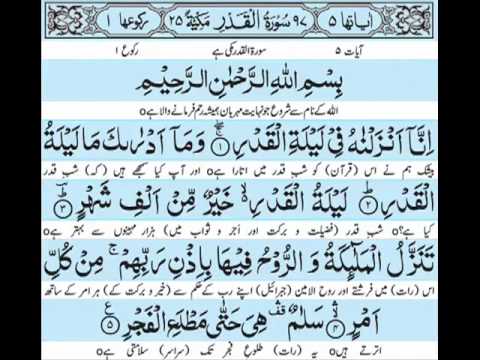 اٰيَاتُهَا ٥ ٩٧ سُوْرَةُ الْقَدْرِ مَكِّيَّةٌ ٢٥ رُكُوْعُهَا ١
آیات ۵ سورۃ القدر مکی ہے رکوع ۱
بِسْمِ اللّٰهِ الرَّحْمٰنِ الرَّحِيْمِ
اللہ کے نام سے شروع جو نہایت مہربان ہمیشہ رحم فرمانے والا ہے o
اِنَّاۤ اَنْزَلْنٰهُ فِيْ لَيْلَةِ الْقَدْرِ ۚۖ ١ وَمَاۤ اَدْرٰىكَ مَا لَيْلَةُ
بیشک ہم نے اس (قرآن) کو شب قدر میں اتارا ہے o اور آپ کیا سمجھے ہیں (کہ) شب قدر
الْقَدْرِ ؕ ٢ لَيْلَةُ الْقَدْرِ ۙ خَيْرٌ مِّنْ اَلْفِ شَهْرٍ ؕؔ ٣
کیا ہے؟ o شب قدر (فضیلت و برکت اور اَجر و ثواب میں) ہزار مہینوں سے بہتر ہے o
تَنَزَّلُ الْمَلٰٓئِكَةُ وَ الرُّوْحُ فِيْهَا بِاِذْنِ رَبِّهِمْ ۚ مِنْ كُلِّ
اس (رات) میں فرشتے اور روح الامین (جبرائیل) اپنے رب کے حکم سے (خیر و برکت کے) ہر امر کے ساتھ
اَمْرٍ ۙۛ ٤ سَلٰمٌ ۛ۫ هِيَ حَتّٰى مَطْلَعِ الْفَجْرِ ٥
اترتے ہیں o یہ (رات) طلوع فجر تک (سراسر) سلامتی ہے o